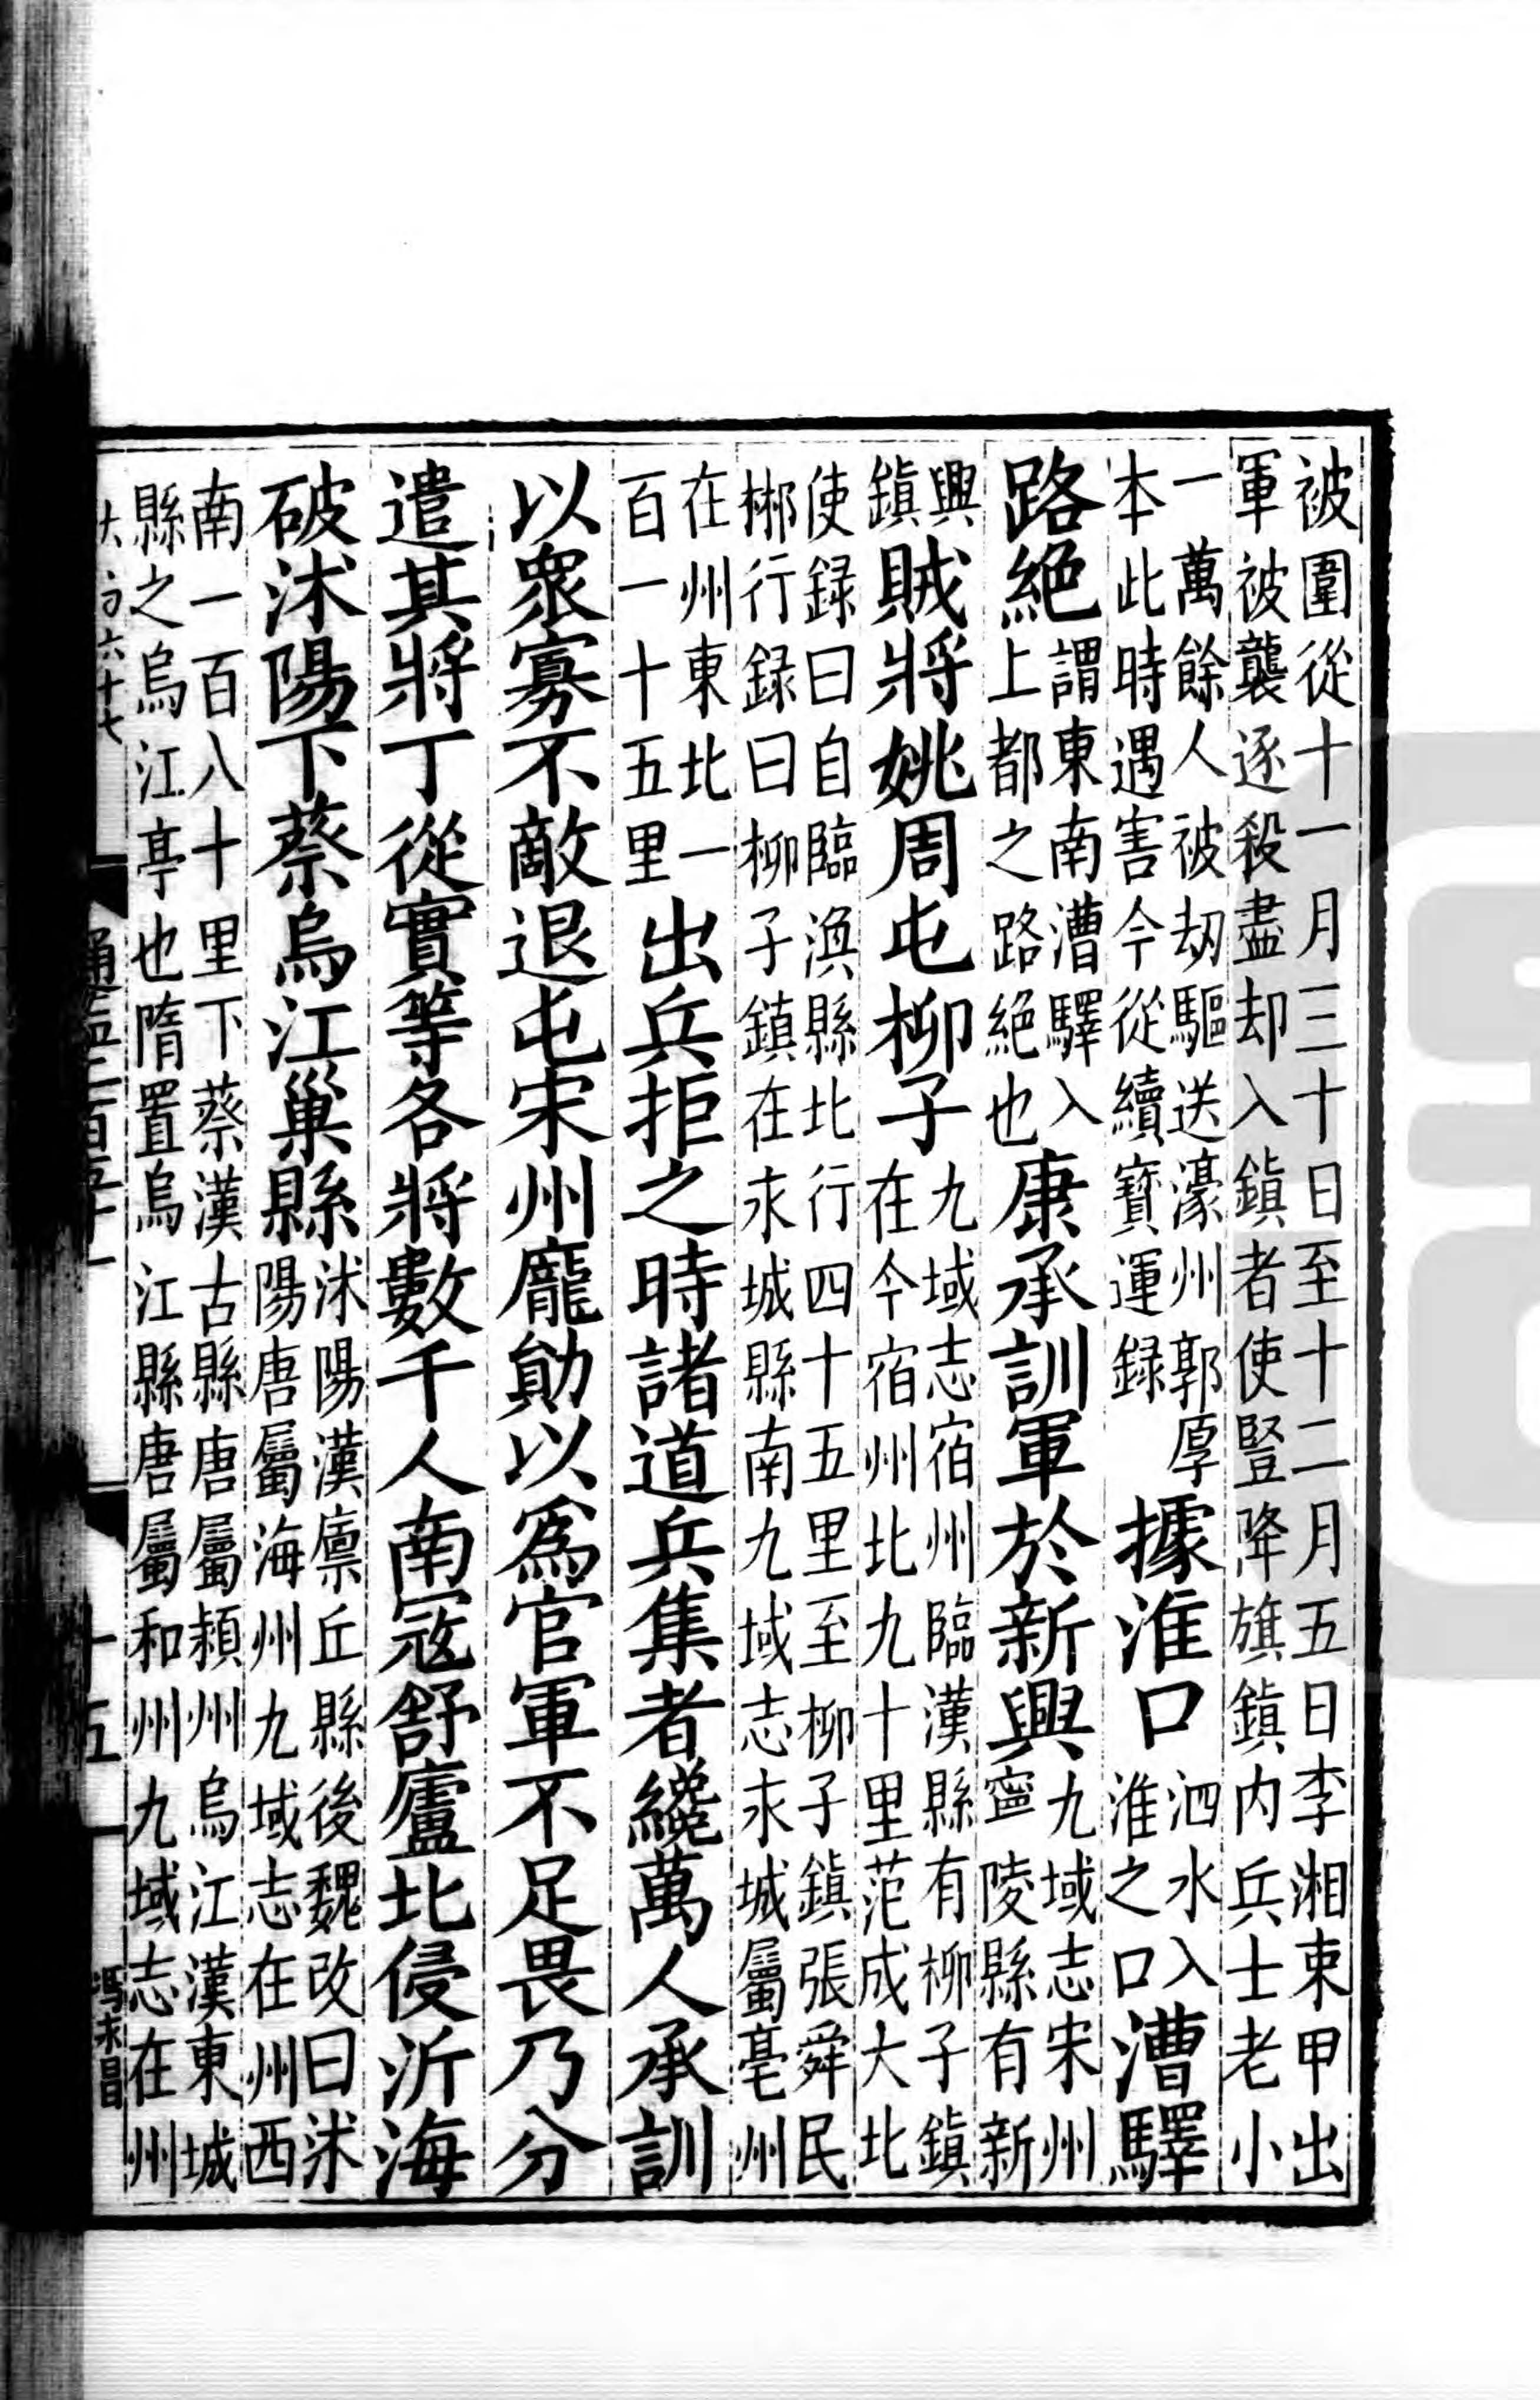 被圍從十一月三十日至十二月五日李湘束甲出
軍被襲逐殺盡却入鎮者使豎降旗鎮内兵士老小
一萬餘人被刼驅送濠州郭厚
本此時遇害今從續寶運録
據淮口
泗水入
淮之口
漕驛
路絶
謂東南漕驛入
上都之路絶也
康承訓軍於新興
九域志宋州
寧陵縣有新
興
鎮
賊將姚周屯柳子
九域志宿州臨漢縣有柳子鎮
在今宿州北九十里范成大北
使録曰自臨渙縣北行四十五里至柳子鎮張舜民
郴行録曰柳子鎮在永城縣南九域志永城屬亳州
在州東北一
百一十五里
出兵拒之時諸道兵集者纔萬人承訓
以衆寡不敵退屯宋州龐勛以爲官軍不足畏乃分
遣其將丁從實等各將數千人南寇舒廬北侵沂海
破沭陽下蔡烏江巢縣
沭陽漢廩丘縣後魏改曰沭
陽唐屬海州九域志在州西
南一百八十里下蔡漢古縣唐屬潁州烏江漢東城
縣之烏江亭也隋置烏江縣唐屬和州九域志在州
六十七
通鑑二百五十一
十五